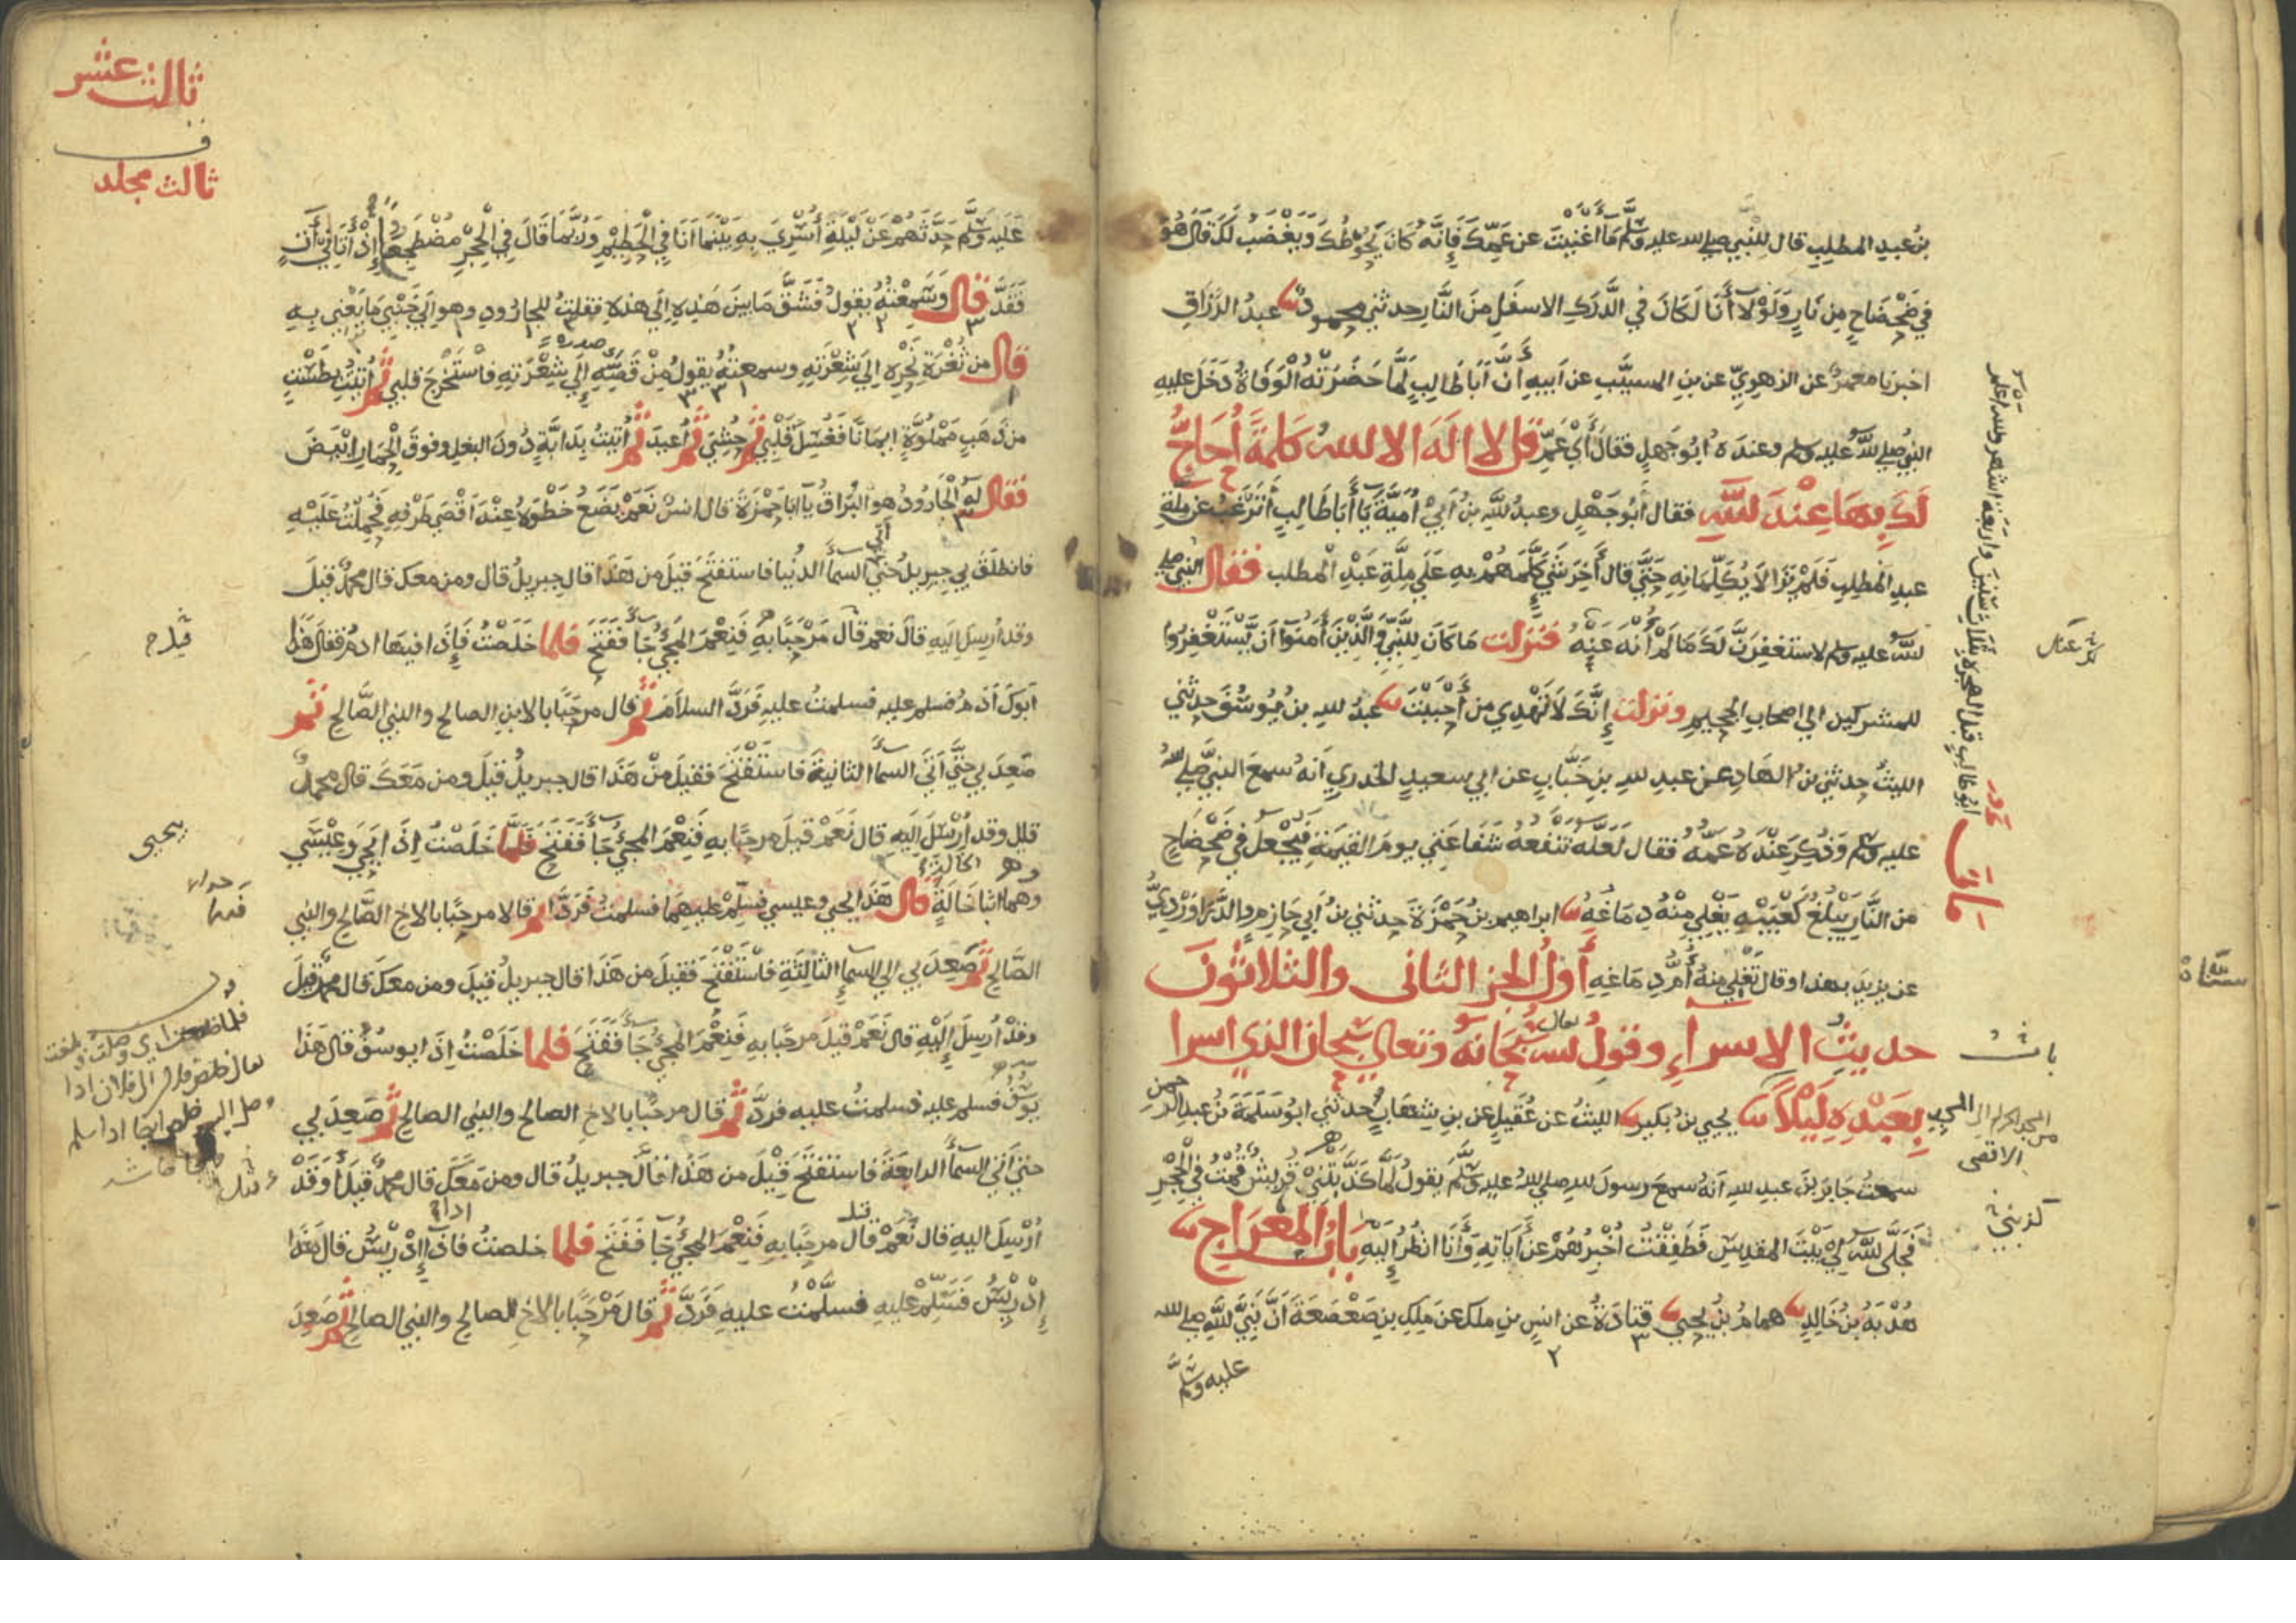 بن عبد المطلب قال للنبي صلى الله عليه وسلم ما أغنيت عن عمك فإنه كان يحوطك ويغضب لك قال هو
في ضحضاح من نار ولولا أنا لكان في الدرك الاسفل من النار حدثني محمود عبد الرزاق
اخبرنا معمر عن الزهري عن بن المسيب عن أبيه أن أبا طالب لما حضرته الوفاة دخل عليه
النبي صلى الله عليه وسلم وعنده ابو جهل فقال أي عم قل لا اله الا الله كلمة أحاج
لك بها عند الله فقال أبو جهل وعبد الله بن أبي أمية يا أبا طالب أترغب عن ملة
عبد المطلب فلم يزالا يكلمانه حتى قال أخر شي كلمهم به على ملة عبد المطلب فقال النبي صلى
الله عليه وسلم لاستغفرن لك ما لم أنه عنه فنزلت ما كان للنبي والذين أمنوا أن يستغفروا
للمشركين الى اصحاب الجحيم ونزلت إنك لا تهدي من أحببت عبد الله بن يوسف حدثني
الليث حدثني بن الهاد عن عبد الله بن خباب عن ابي سعيد الخدري أنه سمع النبي صلى الله
عليه وسلم وذكر عنده عمه فقال لعله تنفعه شفاعتي يوم القيمة فيجعل في ضحضاح
من النار يبلغ كعبيه يغلي منه دماغه ابراهيم بن حمزة حدثني بن أبي حازم والدراوردي
عن يزيد بهذا وقال تغلي منه أم دماغه أول الجز الثاني والثلاثون
حديث الاسراء وقول الله سبحانه وتعالى سبحان الذي اسرا
بعبده ليلا يحيى بن بكير الليث عن عقيل عن بن شهاب حدثني ابو سلمة بن عبد الرحمن
سمعت جابر بن عبد الله أنه سمع رسول الله صلى الله عليه وسلم يقول لما كذبتني قريش قمت في الحجر
فجلى الله لي بيت المقدس فطفقت أخبرهم عن أياته وأنا انظر إليه باب المعراج
هدبة بن خالد همام بن يحيى قتادة عن انس بن ملك عن ملك بن صعصعة أن نبي الله صلى الله
عليه وسلم
مات
ابو طالب قبل الهجرة بثلاث سنين واربعة اشهر والله اعلم
باب
من المسجد الحرام الى المسجد
الاقصى
كذبني
ثالث عشر
ثالث مجلد
عليه وسلم حدثهم عن ليلة أسري به بينما انا في الحطيم وربما قال في الحجر مضطجعا إذ أتاني أت
فقد قال وسمعته يقول فشق ما بين هذه إلى هذه فقلت للجارود وهو إلى جنبي ما يعني به
قال من ثغرة نحره إلى شعرته وسمعته يقول من قصه إلى شعرته فاستخرج قلبي ثم أتيت بطست
من ذهب مملوة إيمانا فغسل قلبي ثم حشي ثم أعيد ثم أتيت بدابة دون البغل وفوق الحمار ابيض
فقال له الجارود هو البراق يا ابا حمزة قال انس نعم يضع خطوه عند أقصى طرفه فحملت عليه
فانطلق بي جبريل حتى السما الدنيا فاستفتح قيل من هذا قال جبريل قال ومن معك قال محمد قيل
وقد أرسل إليه قال نعم قال مرحبا به فنعم المجي جا ففتح فلما خلصت فإذا فيها ادم فقال هذا
أبوك أدم فسلم عليه فسلمت عليه فرد السلام ثم قال مرحبا بالابن الصالح والنبي الصالح ثم
صعد بي حتى أتى السما الثانية فاستفتح فقيل من هذا قال جبريل قيل ومن معك قال محمد
قيل وقد أرسل إليه قال نعم قيل مرحبا به فنعم المجي جا ففتح فلما خلصت إذا يحيى وعيسى
وهما ابنا خالة قال هذا يحيى وعيسى فسلم عليهما فسلمت فردا ثم قالا مرحبا بالاخ الصالح والنبي
الصالح ثم صعد بي الى السما الثالثة فاستفتح فقيل من هذا قال جبريل قيل ومن معك قال محمد قيل
وقد أرسل إليه قال نعم قيل مرحبا به فنعم المجي جا ففتح فلما خلصت إذا يوسف قال هذا
يوسف فسلم عليه فسلمت عليه فرد ثم قال مرحبا بالاخ الصالح والنبي الصالح ثم صعد بي
حتى أتى السما الرابعة فاستفتح قيل من هذا قال جبريل قال ومن معك قال محمد قيل أوقد
أرسل اليه قال نعم قال مرحبا به فنعم المجي جا ففتح فلما خلصت فاذا إدريس قال هذا
إدريس فسلم عليه فسلمت عليه فرد ثم قال مرحبا بالاخ الصالح والنبي الصالح ثم صعد
يحيى